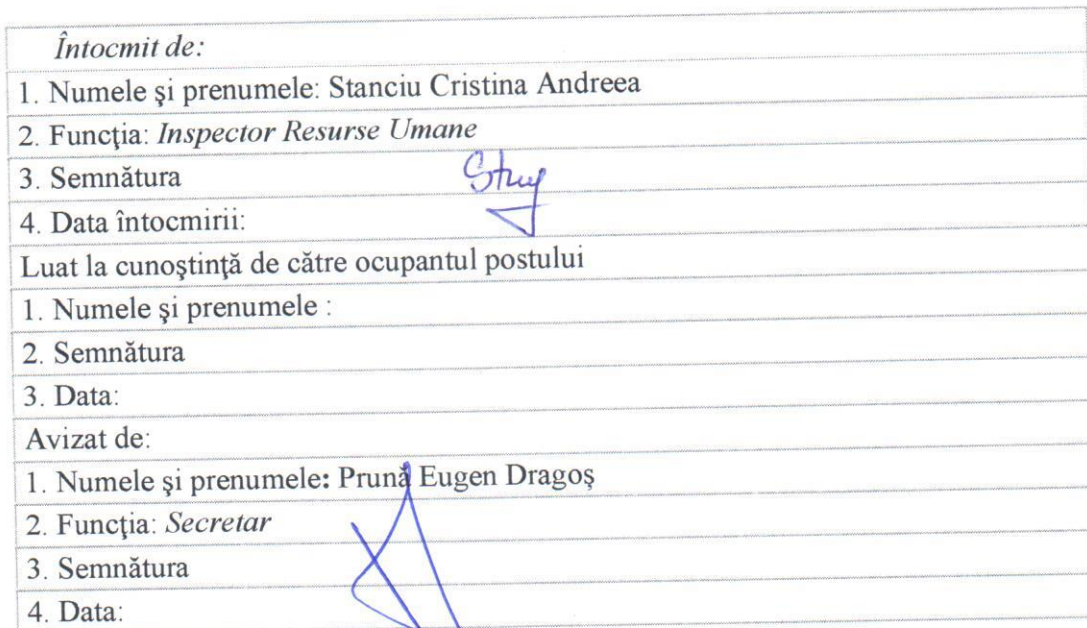 Întocmit de:
1. Numele şi prenumele: Stanciu Cristina Andreea
2. Funcţia: Inspector Resurse Umane
3. Semnătura
4. Data întocmirii:
Luat la cunoştinţă de către ocupantul postului
1. Numele şi prenumele :
2. Semnătura
3. Data:
Avizat de:
1. Numele şi prenumele: Prună Eugen Dragoş
2. Funcţia: Secretar
3. Semnătura
4. Data: